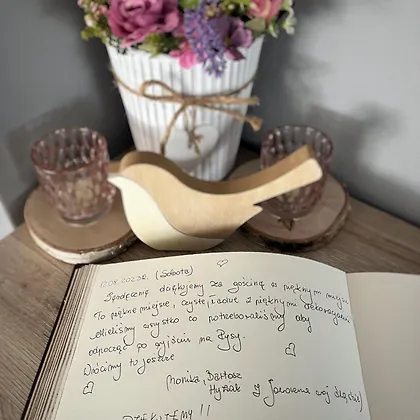 12.08.2023r. (Sobota)
Serdecznie dziękujemy za gościnę w pięknym miejscu
To piękne miejsce, czyste, ładne z pięknymi dekoracjami
Mieliśmy wszystko co potrzebowaliśmy aby
odpocząć po wyjściu na Rysy.
Wrócimy tu jeszcze
Monika, Bartosz
z Jaworzna woj śląskie
DZIĘKUJEMY !!